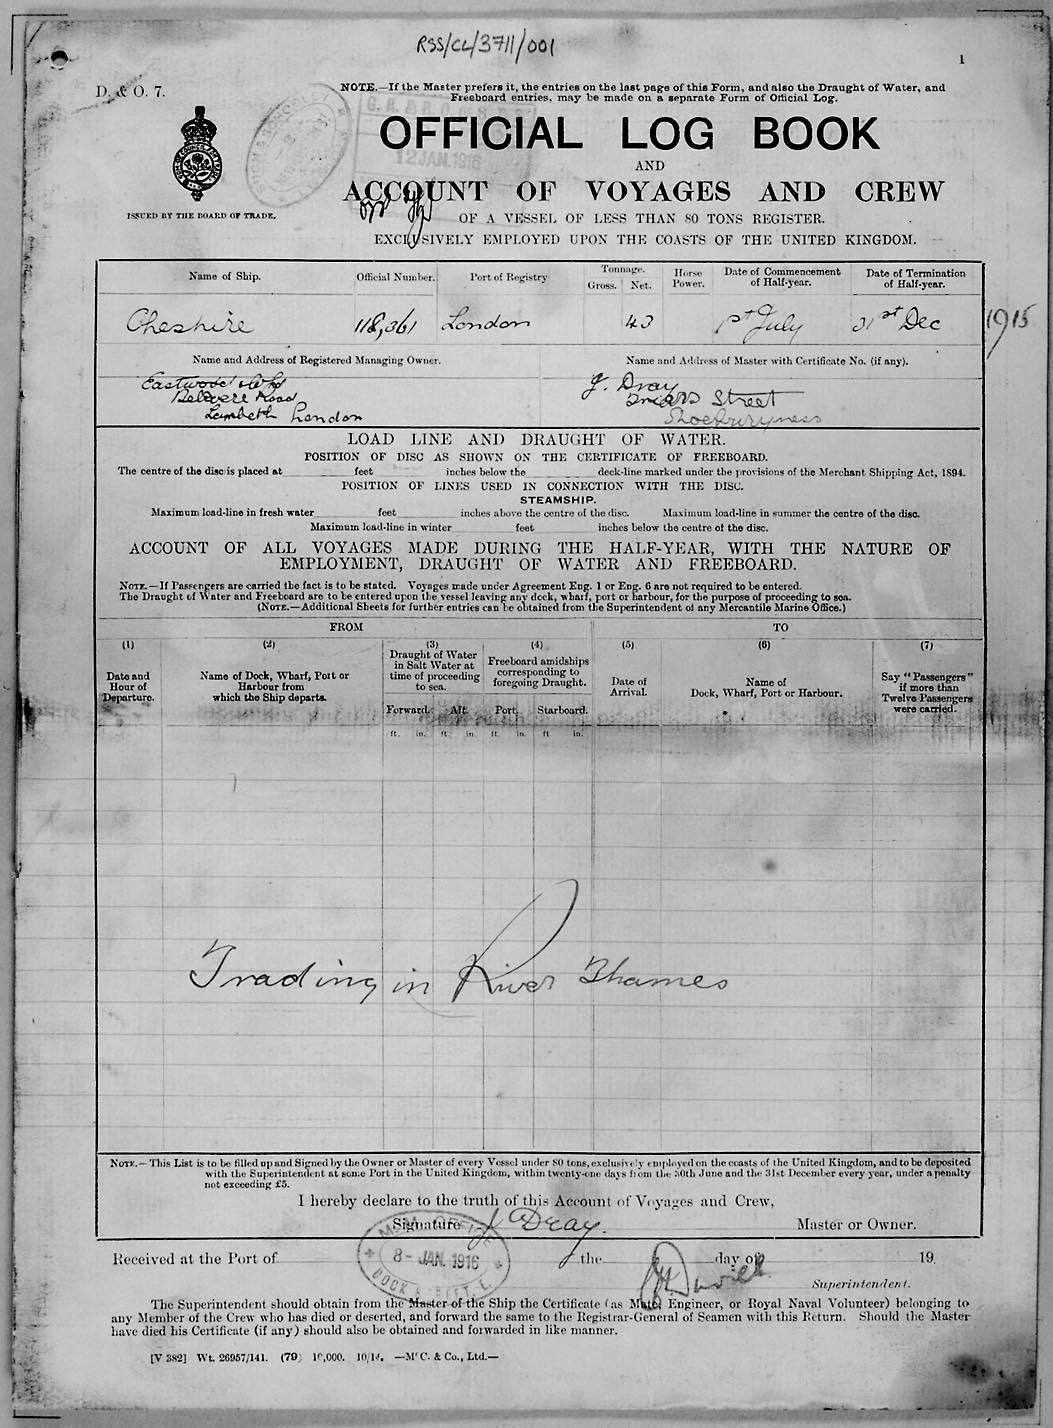 RSS/CL/3711/001
1
D. & O. 7.
NOTE.—If the Master prefers it, the entries on the last page of this Form, and also the Draught of Water, and
Freeboard entries, may be made on a separate Form of Official Log.
12 JAN. 1916
OFFICIAL LOG BOOK
AND
ACCOUNT OF VOYAGES AND CREW
ISSUED BY THE BOARD OF TRADE.
OF A VESSEL OF LESS THAN 80 TONS REGISTER.
EXCLUSIVELY EMPLOYED UPON THE COASTS OF THE UNITED KINGDOM.
Name of Ship. Official Number. Port of Registry Tonnage. Gross. Net. Horse Power. Date of Commencement of Half-year. Date of Termination of Half-year.
Cheshire 118,361 London 43 1st July 31st Dec 1915
Name and Address of Registered Managing Owner. Name and Address of Master with Certificate No. (if any).
Eastwood J. Dray
Road Street
Lambeth London Shoeburyness
LOAD LINE AND DRAUGHT OF WATER.
POSITION OF DISC AS SHOWN ON THE CERTIFICATE OF FREEBOARD.
The centre of the disc is placed at feet inches below the deck-line marked under the provisions of the Merchant Shipping Act, 1894.
POSITION OF LINES USED IN CONNECTION WITH THE DISC.
STEAMSHIP.
Maximum load-line in fresh water feet inches above the centre of the disc. Maximum load-line in summer the centre of the disc.
Maximum load-line in winter feet inches below the centre of the disc.
ACCOUNT OF ALL VOYAGES MADE DURING THE HALF-YEAR, WITH THE NATURE OF
EMPLOYMENT, DRAUGHT OF WATER AND FREEBOARD.
NOTE.—If Passengers are carried the fact is to be stated. Voyages made under Agreement Eng. 1 or Eng. 6 are not required to be entered.
The Draught of Water and Freeboard are to be entered upon the vessel leaving any dock, wharf, port or harbour, for the purpose of proceeding to sea.
(NOTE.—Additional Sheets for further entries can be obtained from the Superintendent of any Mercantile Marine Office.)
FROM TO
(1) (2) (3) (4) (5) (6) (7)
Date and Hour of Departure. Name of Dock, Wharf, Port or Harbour from which the Ship departs. Draught of Water in Salt Water at time of proceeding to sea. Freeboard amidships corresponding to foregoing Draught. Date of Arrival. Name of Dock, Wharf, Port or Harbour. Say "Passengers" if more than Twelve Passengers were carried.
Forward. Aft. Port. Starboard.
ft. in. ft. in. ft. in. ft in.
Trading in River Thames
NOTE.—This List is to be filled up and Signed by the Owner or Master of every Vessel under 80 tons, exclusively employed on the coasts of the United Kingdom, and to be deposited
with the Superintendent at some Port in the United Kingdom, within twenty-one days from the 30th June and the 31st December every year, under a penalty
not exceeding £5.
I hereby declare to the truth of this Account of Voyages and Crew,
Signature J Dray. Master or Owner.
M.M. OFFICE
8 - JAN. 1916
DOCK STREET. E.
Received at the Port of the day of 19
Superintendent.
The Superintendent should obtain from the Master of the Ship the Certificate (as Mate, Engineer, or Royal Naval Volunteer) belonging to
any Member of the Crew who has died or deserted, and forward the same to the Registrar-General of Seamen with this Return. Should the Master
have died his Certificate (if any) should also be obtained and forwarded in like manner.
[V 382] Wt. 26957/141. (79) 10,000. 10/14. —McC. & Co., Ltd.—